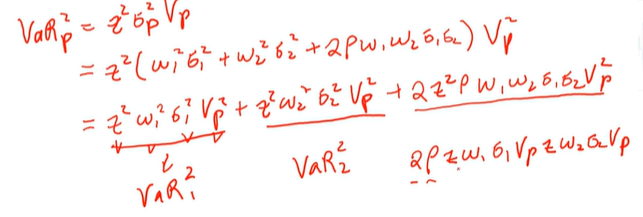 VaR_p² = z²σ_p² V_p
= z²(w₁²σ₁² + w₂²σ₂² + 2ρw₁w₂σ₁σ₂) V_p²
= z²w₁²σ₁²V_p² + z²w₂²σ₂²V_p² + 2z²ρw₁w₂σ₁σ₂V_p²
VaR₁² VaR₂² 2ρzw₁σ₁V_p zw₂σ₂V_p